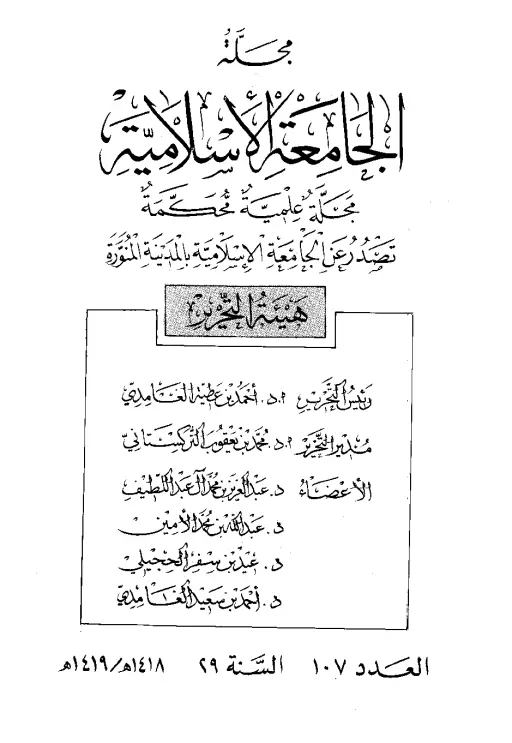 مجلة
الجامعة الإسلامية
مجلة علمية محكمة
تصدر عن الجامعة الإسلامية بالمدينة المنورة
هيئة التحرير
رئيس التحرير ا.د. أحمد بن عطية الغامدي
مدير التحرير ا.د. محمد بن يعقوب التركستاني
الأعضاء د. عبد العزيز بن محمد آل عبد اللطيف
د. عبد الله بن محمد الأمين
د. عيد بن سفر الحجيلي
د. أحمد بن سعيد الغامدي
العدد ١٠٧ السنة ٢٩ ١٤١٨هـ/١٤١٩هـ